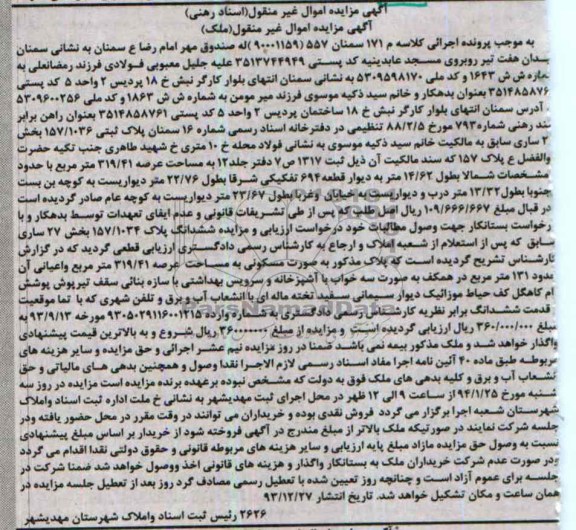 آگهی مزایده اموال غیر منقول(اسناد رهنی)
آگهی مزایده اموال غیر منقول(ملک)
به موجب پرونده اجرائی کلاسه م ۱۷۱ سمنان ۵۵۷ (۹۰۰۰۱۱۵۹)له صندوق مهر امام رضا ع سمنان به نشانی سمنان
میدان هفت تیر روبروی مسجد عابدینیه کد پستی ۳۵۱۳۷۴۴۹۴۹ علیه جلیل معبوبی فولادی فرزند رمضانعلی به
شماره ش ش ۱۶۴۳ و کد ملی ۵۳۰۹۵۹۸۱۷۰ به نشانی سمنان انتهای بلوار کارگر نبش خ ۱۸ پردیس ۲ واحد ۵ کد پستی
۳۵۱۴۸۵۸۷۶ بعنوان بدهکار و خانم سید ذکیه موسوی فرزند میر مومن به شماره ش ش ۱۸۶۳ و کد ملی ۵۳۰۹۶۰۰۲۵۶
آدرس سمنان انتهای بلوار کارگر نبش خ ۱۸ ساختمان پردیس ۲ واحد ۵ کد پستی ۳۵۱۴۸۵۸۷۶۱ بعنوان راهن برابر
سند رهنی شماره۷۹۳ مورخ ۸۸/۲/۵ تنظیمی در دفترخانه اسناد رسمی شماره ۱۶ سمنان پلاک ثبتی ۱۵۷/۱۰۳۶ بخش
ساری سابق به مالکیت خانم سید ذکیه موسوی به نشانی فولاد محله خ ۱۰ متری خ شهید طاهری جنب تکیه حضرت
ابوالفضل ع پلاک ۱۵۷ که سند مالکیت آن ذیل ثبت ۱۳۱۷ ص۷ دفتر جلد۱۲ به مساحت عرصه ۳۱۹/۴۱ متر مربع با حدود
مشخصات شمالا بطول ۱۴/۶۲ متر به دیوار قطعه۶۹۴ تفکیکی شرقا بطول ۲۲/۷۶ متر دیواریست به کوچه بن بست
جنوبا بطول۱۳/۳۲ متر درب و دیواریست به خیابان وغربا بطول ۲۳/۶۷ متر دیواریست به کوچه عام صادر گردیده است
در قبال مبلغ ۱۰۹/۶۶۶/۶۶۷ ریال اصل طلب که پس از طی تشریفات قانونی و عدم ایفای تعهدات توسط بدهکار و با
درخواست بستانکار جهت وصول مطالبات خود درخواست ارزیابی و مزایده ششدانگ پلاک ۱۵۷/۱۰۳۴ بخش ۲۷ ساری
سابق که پس از استعلام از شعبه املاک و ارجاع به کارشناس رسمی دادگستری ارزیابی قطعی گردید که در گزارش
کارشناس تشریح گردیده است که پلاک مذکور به صورت مسکونی به مساحت عرصه ۳۱۹/۴۱ متر مربع واعیانی آن
حدود ۱۳۱ متر مربع در همکف به صورت سه خواب با آشپزخانه و سرویس بهداشتی با سازه بنائی سقف تیرپوش پوشش
بام کاهگل کف حیاط موزائیک دیوار سیمانی سفید تخته ماله ای با انشعاب آب و برق و تلفن شهری که با تما موقعیت
قدمت ششدانگ برابر نظریه کارشناس رسمی دادگستری به شماره ۹۳۰۵۰۲۹۱۱۶۰۰۱۲۱۵ مورخه ۹۳/۹/۱۳ به
مبلغ ۳۶۰/۰۰۰/۰۰۰ ریال ارزیابی گردیده است و مزایده از مبلغ ۳۶۰۰۰۰۰۰۰ ریال شروع و به بالاترین قیمت پیشنهادی
واگذار خواهد شد و ملک مذکور بیمه نمی باشد ضمنا در روز مزایده نیم عشر اجرائی و حق مزایده و سایر هزینه های
مربوطه طبق ماده ۴۰ آئین نامه اجرا مفاد اسناد رسمی لازم الاجرا نقدا وصول و همچنین بدهی های مالیاتی و حق
انشعاب آب و برق و کلیه بدهی های ملک فوق به دولت که مشخص نبوده برعهده برنده مزایده است مزایده در روز سه
شنبه مورخ ۹۴/۱/۲۵ از ساعت ۹ الی ۱۲ ظهر در محل اجرای ثبت مهدیشهر به نشانی خ ملت اداره ثبت اسناد واملاک
شهرستان شعبه اجرا برگزار می گردد فروش نقدی بوده و خریداران می توانند در وقت مقرر در محل حضور یافته ودر
جلسه شرکت نمایند در صورتیکه ملک بالاتر از مبلغ مندرج در آگهی فروخته شود از خریدار بر اساس مبلغ پیشنهادی
نسبت به وصول حق مزایده مازاد مبلغ پایه ارزیابی و سایر هزینه های مربوطه قانونی و حقوق دولتی نقدا اقدام می گردد
ودر صورت عدم شرکت خریداران ملک به بستانکار واگذار و هزینه های قانونی اخذ ووصول خواهد شد ضمنا شرکت در
جلسه برای عموم آزاد است و چنانچه روز تعیین شده با تعطیل رسمی مصادف گرد روز بعد از تعطیل جلسه مزایده در
همان ساعت و مکان تشکیل خواهد شد. تاریخ انتشار ۹۳/۱۲/۲۷
۲۶۲۶ رئیس ثبت اسناد واملاک شهرستان مهدیشهر